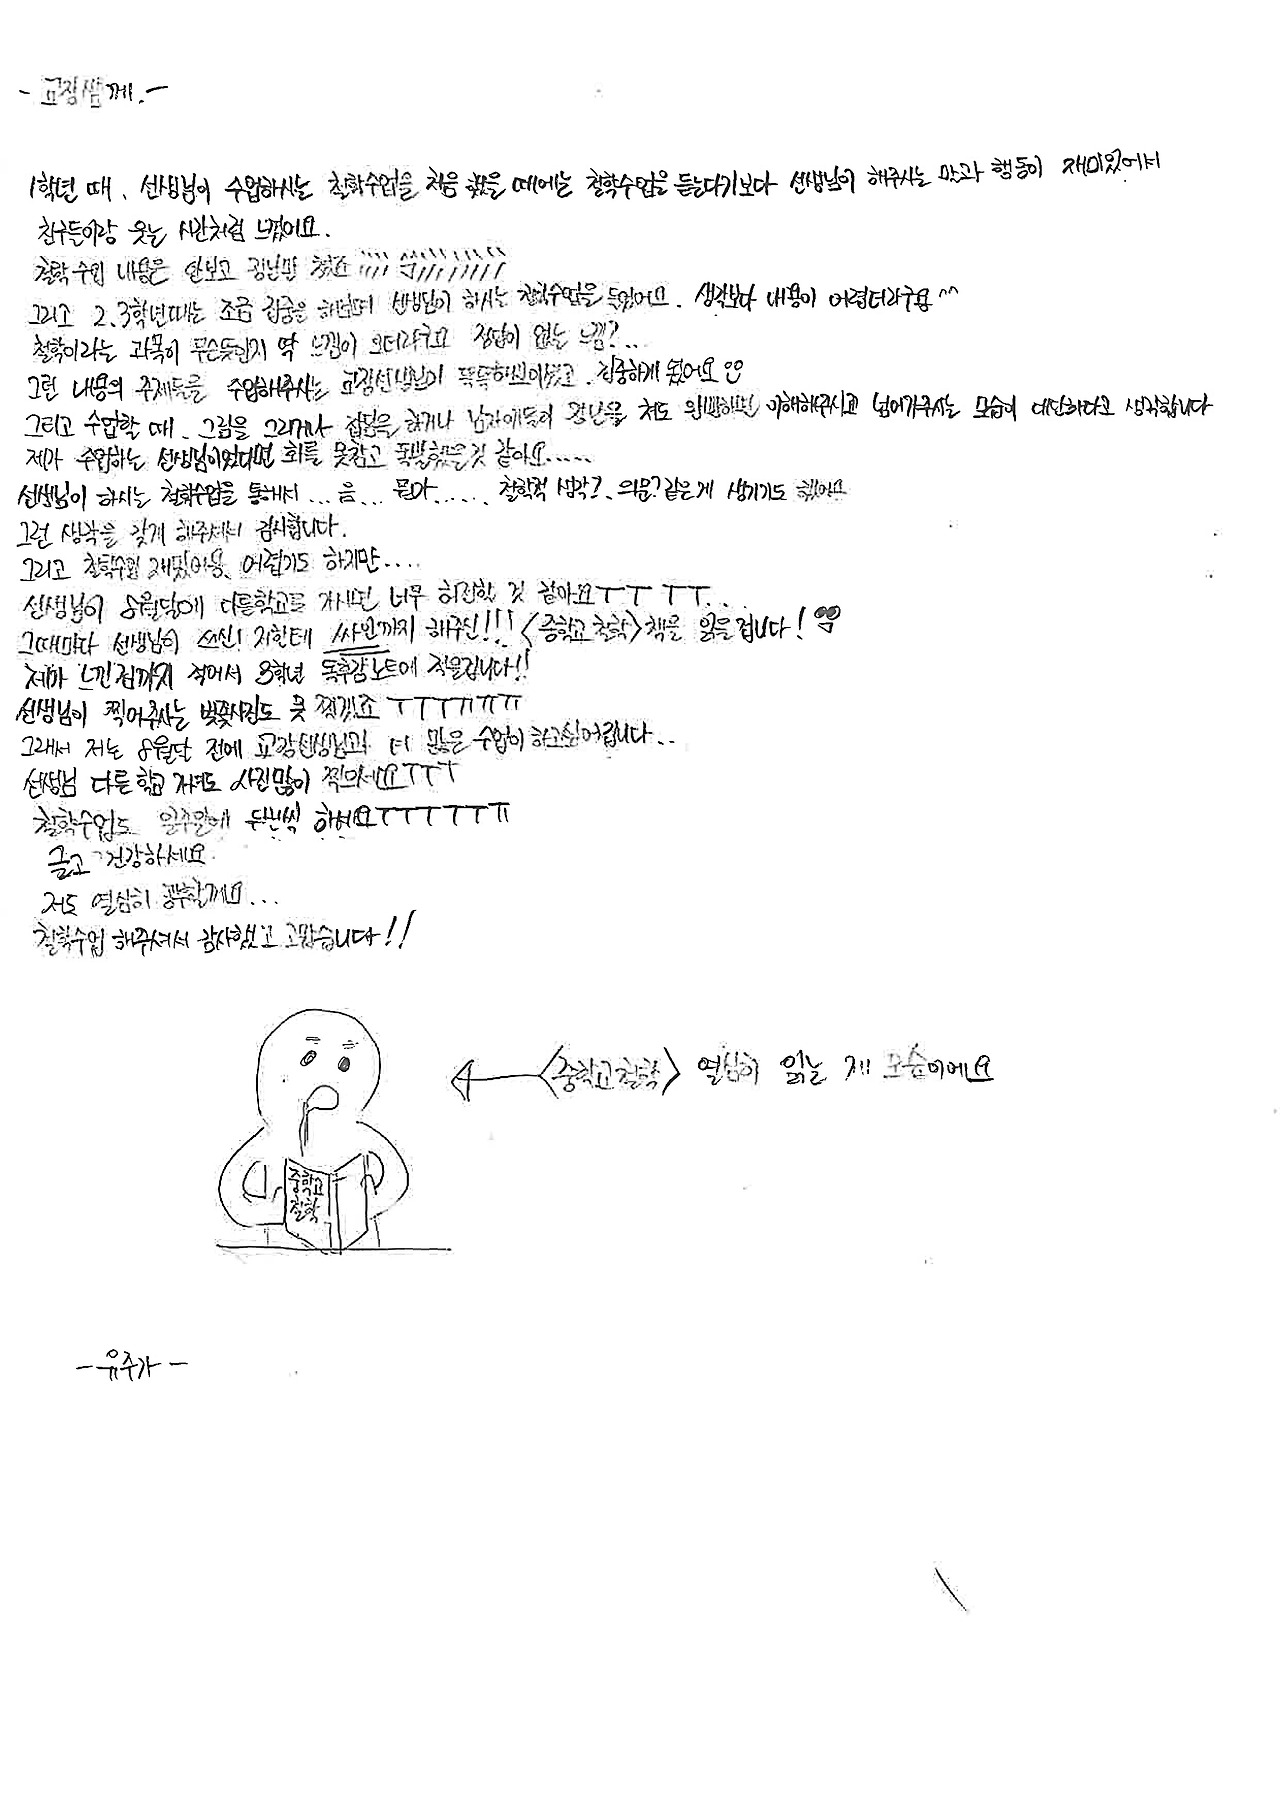 - 교장쌤께. -
1학년 때, 선생님이 수업하시는 철학수업을 처음 했을 때에는 철학수업을 듣는다기보다 선생님이 해주시는 말과 행동이 재미있어서
친구들이랑 웃는 시간처럼 느꼈어요.
철학수업 내용은 안보고 장난만 쳤죠
그리고 2, 3학년때는 조금 집중을 하면서 선생님이 하시는 철학수업을 들었어요. 생각보다 내용이 어렵더라구용^^
철학이라는 과목이 무슨뜻인지 딱 느낌이 오더라구요 정답이 없는 느낌?..
그런 내용의 주제들을 수업해주시는 교장선생님이 똑똑하신이셨고, 집중하게 됐어요
그리고 수업할 때, 그림을 그리거나 잡담을 하거나 남자애들이 장난을 쳐도 웬만하면 이해해주시고 넘어가주시는 모습이 대단하다고 생각합니다
제가 수업하는 선생님이었다면 화를 못참고 폭발했을것 같아요.....
선생님이 하시는 철학수업을 통해서 ... 음... 뭔가...... 철학적 생각?, 의문?같은게 생기기도 했어요
그런 생각을 갖게 해주셔서 감사합니다.
그리고 철학수업 재밌어용, 어렵기도 하지만....
선생님이 8월달에 다른학교로 가시면 너무 허전할 것 같아요ㅜㅜ ㅜㅜ..
그때마다 선생님이 쓰신! 저한테 싸인까지 해주신!!! <중학교 철학> 책을 읽을겁니다!
제가 느낀점까지 적어서 3학년 독후감노트에 적을겁니다!!
선생님이 찍어주시는 벚꽃사진도 못 찍겠죠 ㅜㅜㅜㅠㅠㅠ
그래서 저는 8월달 전에 교장선생님과 더 많은 수업이 하고싶어집니다...
선생님 다른학교 가셔도 사진많이 찍으세요ㅜㅜㅜ
철학수업도 일주일에 두번씩 하세요ㅜㅜㅜㅜㅜㅠ
글고 건강하세요
저도 열심히 공부할께요...
철학수업 해주셔서 감사했고 고맙습니다!!
<중학교 철학> 열심히 읽는 제 모습이에요
중학교
철학
- 유주가 -